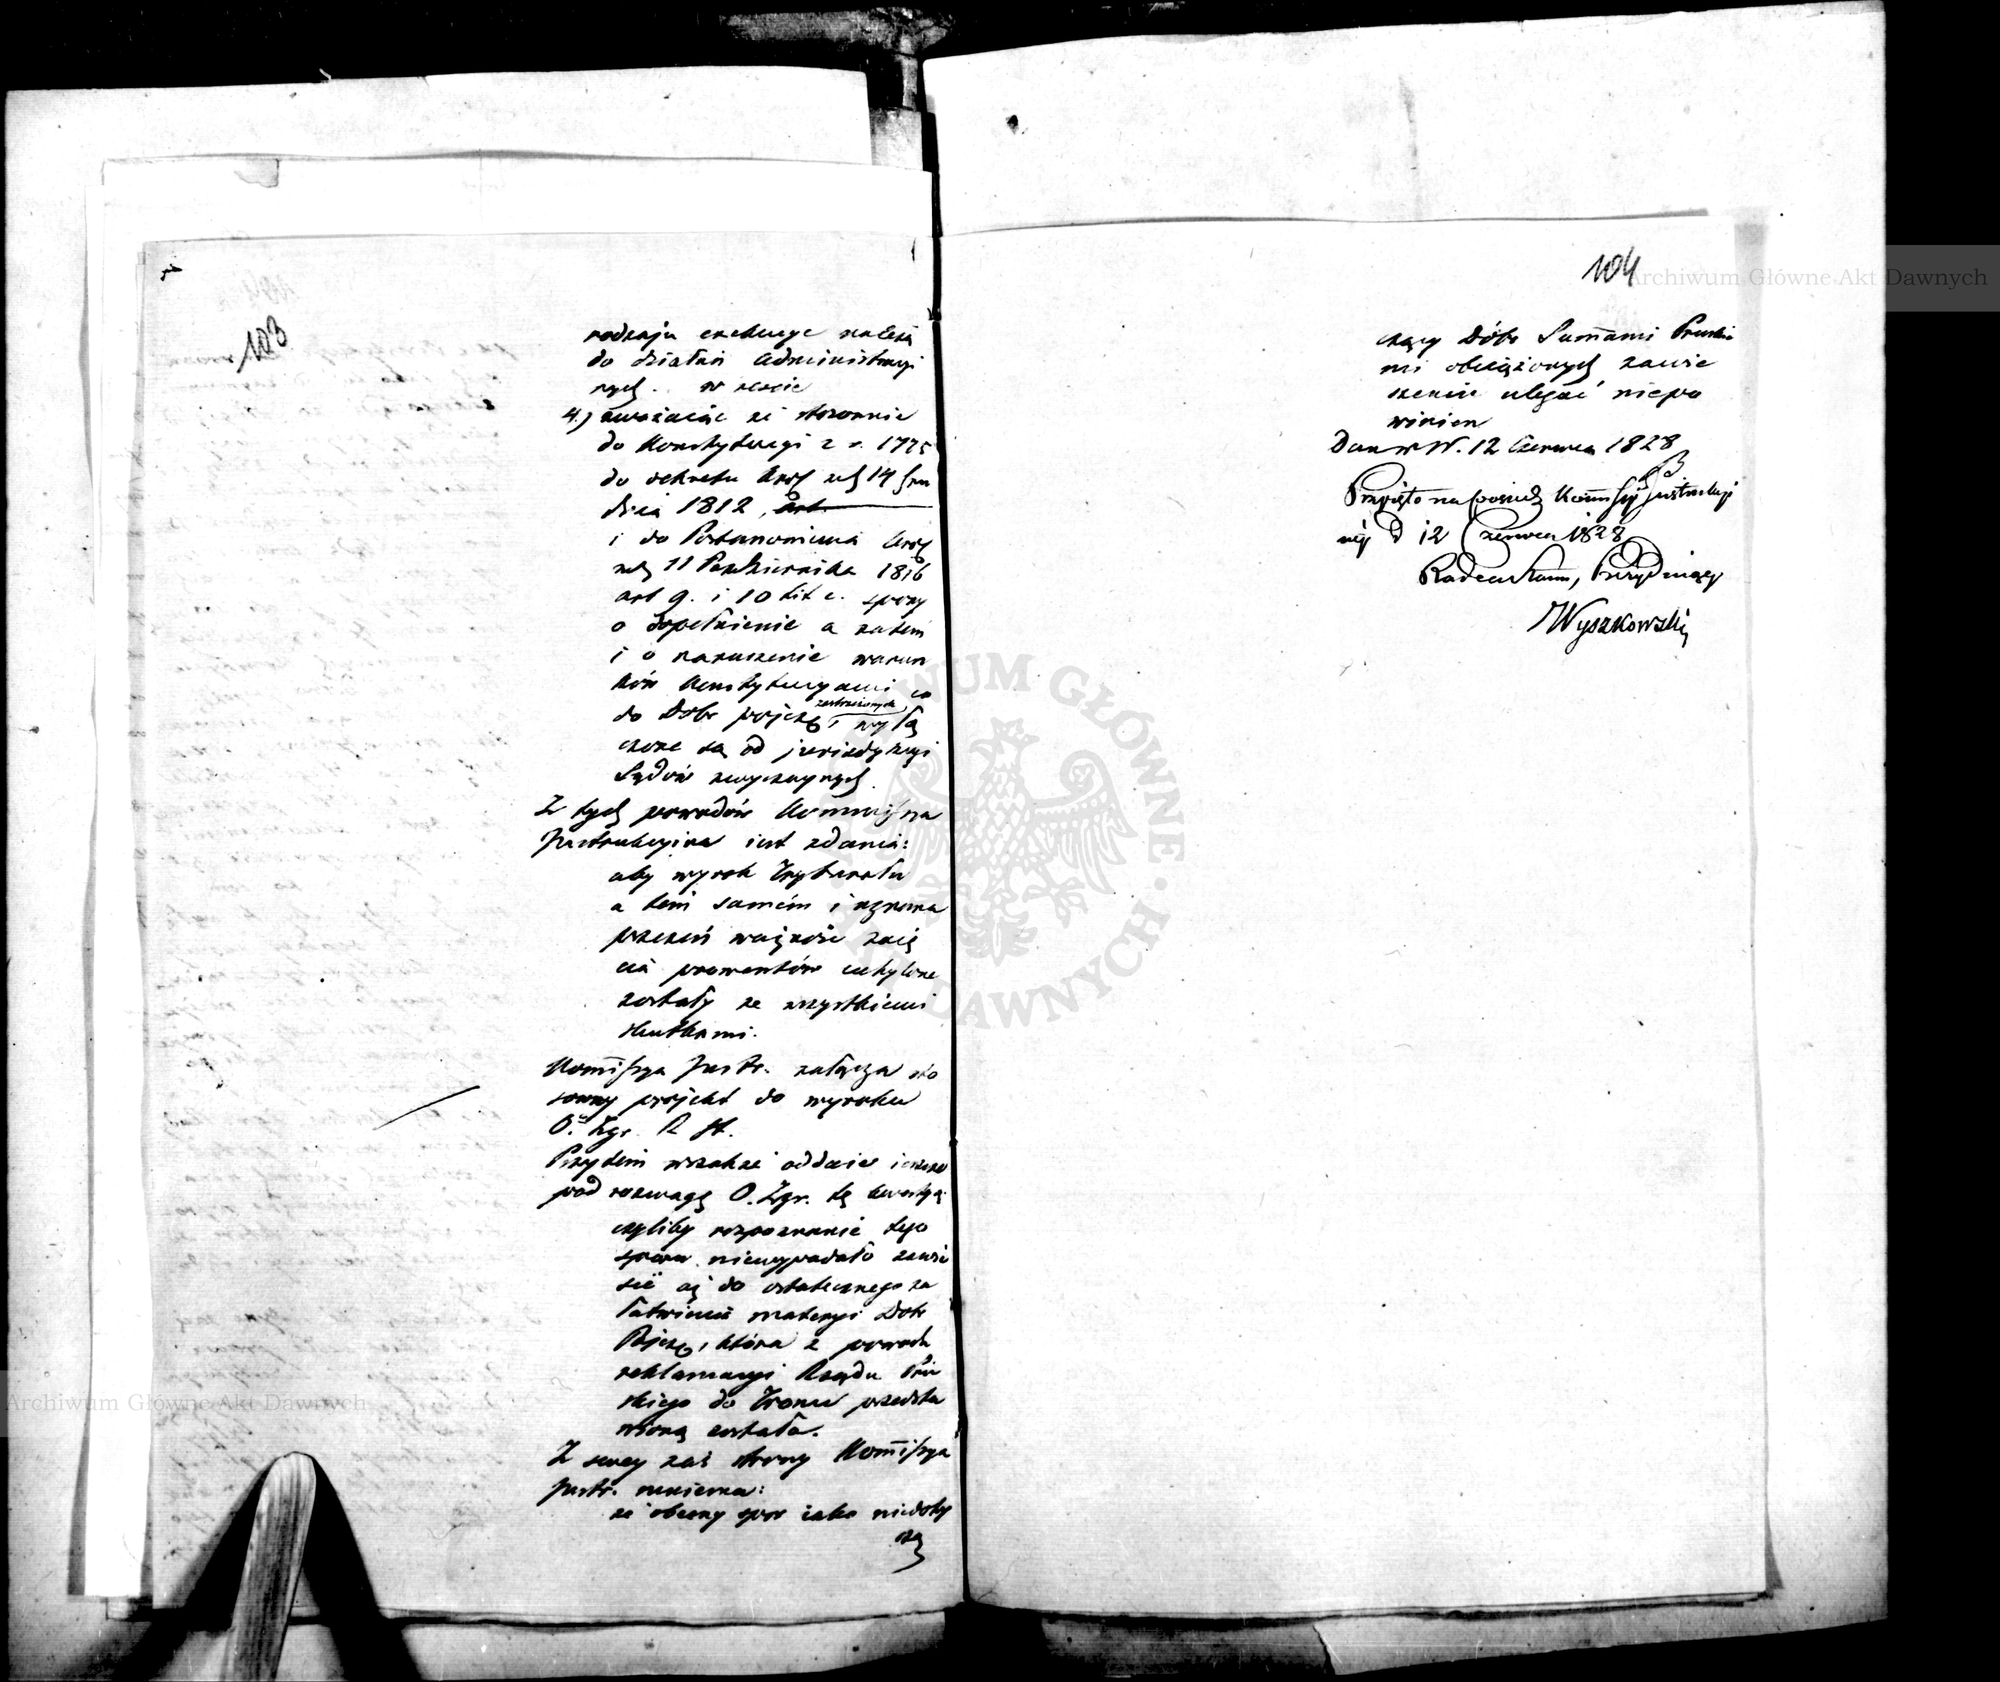 103
rodzaju exekucye należą
do działań Administracyi
nych. w reście
4.) zważaiąc że stosownie
do Konstytucyi z r. 1775
do dekretu Król z d 14 Gru
dnia 1812,
i do Postanowienia Król
z d 11 Października 1816
art 9. i 10 lit c. spory
o dopełnienie a zatem
i o naruszenie warun
ków Konstytucyami co
do Dóbr pojez, zastrzeżonych wyłą
czone są od jurisdykcyi
Sądów zwyczaynych
Z tych powodów Kommissya
Instrukcyina iest zdania:
aby wyrok Trybunału
a tem samem i uznana
przezeń ważność zaię
cia prowentów uchylone
zostały ze wszystkiemi
skutkami.
Kommissya Instr. załącza sto
sowny projekt do wyroku
O. Zgr. R St.
Przytem wszakże oddaie ieszcze
pod rozwagę O. Zgr. tę kwestyą
czyliby rozpoznanie tego
sporu niewypadało zawie
sić aż do ostatecznego za
łatwienia materyi Dóbr
Pojez, która z powodu
reklamacyi Rządu Pru
skiego do Tronu przedsta
wioną została.
Z swey zaś strony Kommissya
Instr. mniema:
że obecny spor iako niedoty
czą
104
czący Dóbr Summami Pruskie
mi obciążonych zawie
szeniu ulegać niepo
winien
Dan w W. 12 Czerwca 1828
Przyięto na posiedz Kommissyi Instrukcyi
néy d 12 Czerwca 1828
Radca Stanu, Prezyduiący
Wyszkowski
Archiwum Główne Akt Dawnych
Archiwum Główne Akt Dawnych
ARCHIWUM GŁÓWNE AKT DAWNYCH